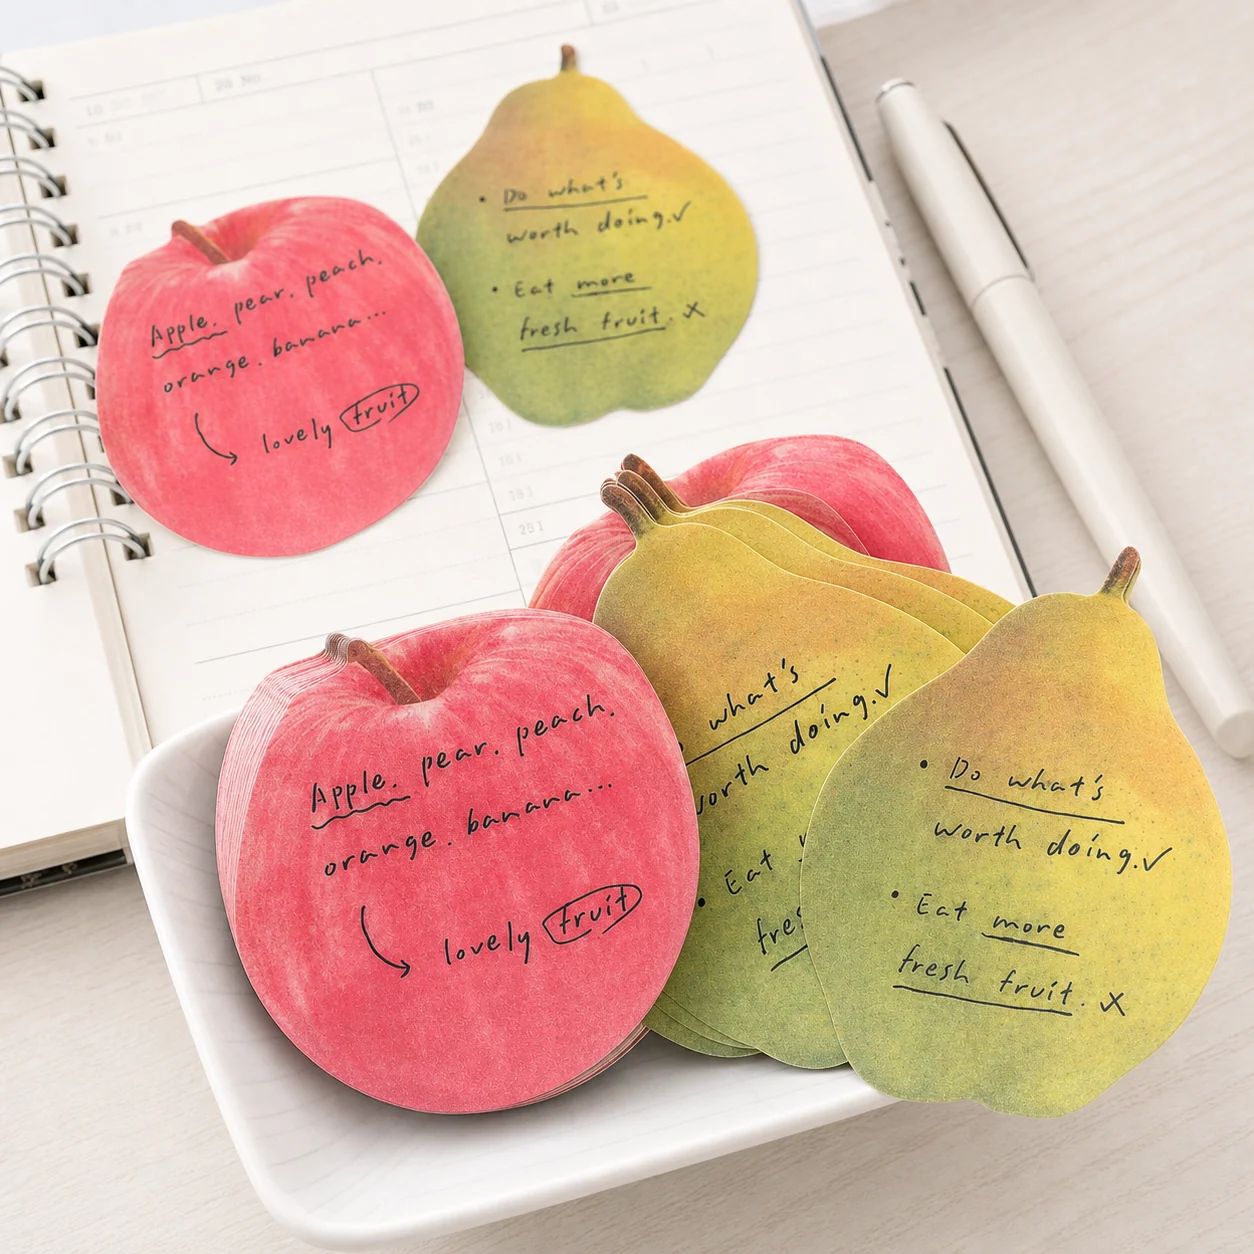 Apple. pear. peach.
orange. banana...
lovely fruit
• Do what's
worth doing.✓
• Eat more
fresh fruit. x
Apple. pear. peach.
orange. banana...
lovely fruit
what's
worth doing.✓
• Eat
• Do what's
worth doing.✓
• Eat more
fresh fruit. x